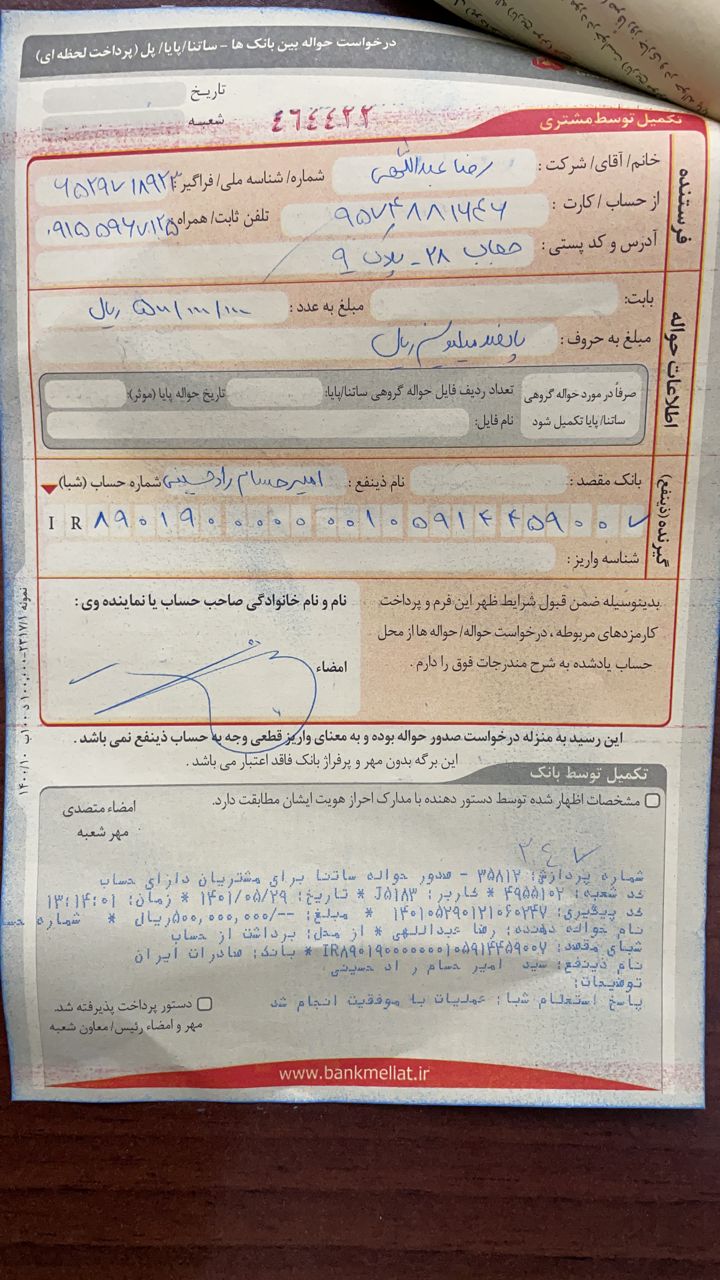 درخواست حواله بین بانک ها - ساتنا/پایا/ پل (پرداخت لحظه ای)
تاریخ
شعبه
۴۶۴۴۲۲
تکمیل توسط مشتری
فرستنده
خانم/ آقای/ شرکت : رضا عبداللهی شماره/ شناسه ملی/ فراگیر:
از حساب / کارت : تلفن ثابت/ همراه:
آدرس و کد پستی : حجاب ۲۸ - پلاک ۹
اطلاعات حواله
بابت: مبلغ به عدد : ۵۰۰/۰۰۰/۰۰۰ ریال
مبلغ به حروف : پانصد میلیون ریال
صرفاً در مورد حواله گروهی ساتنا/ پایا تکمیل شود
تعداد ردیف فایل حواله گروهی ساتنا/پایا: تاریخ حواله پایا (موثر):
نام فایل:
گیرنده (ذینفع)
بانک مقصد : نام ذینفع : امیرحسام رادحسینی شماره حساب (شبا)
IR ۸۹۰۱۹۰۰۰۰۰۰۰۰۱۰۵۹۱۴۴۵۹۰۰۷
شناسه واریز :
بدینوسیله ضمن قبول شرایط ظهر این فرم و پرداخت
کارمزدهای مربوطه ، درخواست حواله/ حواله ها از محل
حساب یادشده به شرح مندرجات فوق را دارم .
نام و نام خانوادگی صاحب حساب یا نماینده وی :
امضاء
این رسید به منزله درخواست صدور حواله بوده و به معنای واریز قطعی وجه به حساب ذینفع نمی باشد .
این برگه بدون مهر و پرفراژ بانک فاقد اعتبار می باشد .
تکمیل توسط بانک
مشخصات اظهار شده توسط دستور دهنده با مدارک احراز هویت ایشان مطابقت دارد.
امضاء متصدی
مهر شعبه
۲۴۷
شماره پردازش: ۳۵۸۱۲ - صدور حواله ساتنا برای مشتریان دارای حساب
کد شعبه: ۴۹۵۵۱۰۲ * کاربر: J۵۱۸۳ * تاریخ: ۱۴۰۱/۰۵/۲۹ * زمان: ۱۳:۱۴:۰۱
کد پیگیری: ۱۴۰۱۰۵۲۹۰۱۲۱۰۶۰۲۴۷ * مبلغ: --/۵۰۰,۰۰۰,۰۰۰ریال * شماره حسا
نام حواله دهنده: رضا عبداللهی * از محل: برداشت از حساب
شبای مقصد: IR۸۹۰۱۹۰۰۰۰۰۰۰۰۱۰۵۹۱۴۴۵۹۰۰۷ * بانک: صادرات ایران
نام ذینفع: سید امیر حسام راد حسینی
توضیحات:
پاسخ استعلام شبا: عملیات با موفقیت انجام شد
دستور پرداخت پذیرفته شد.
مهر و امضاء رئیس/ معاون شعبه
www.bankmellat.ir